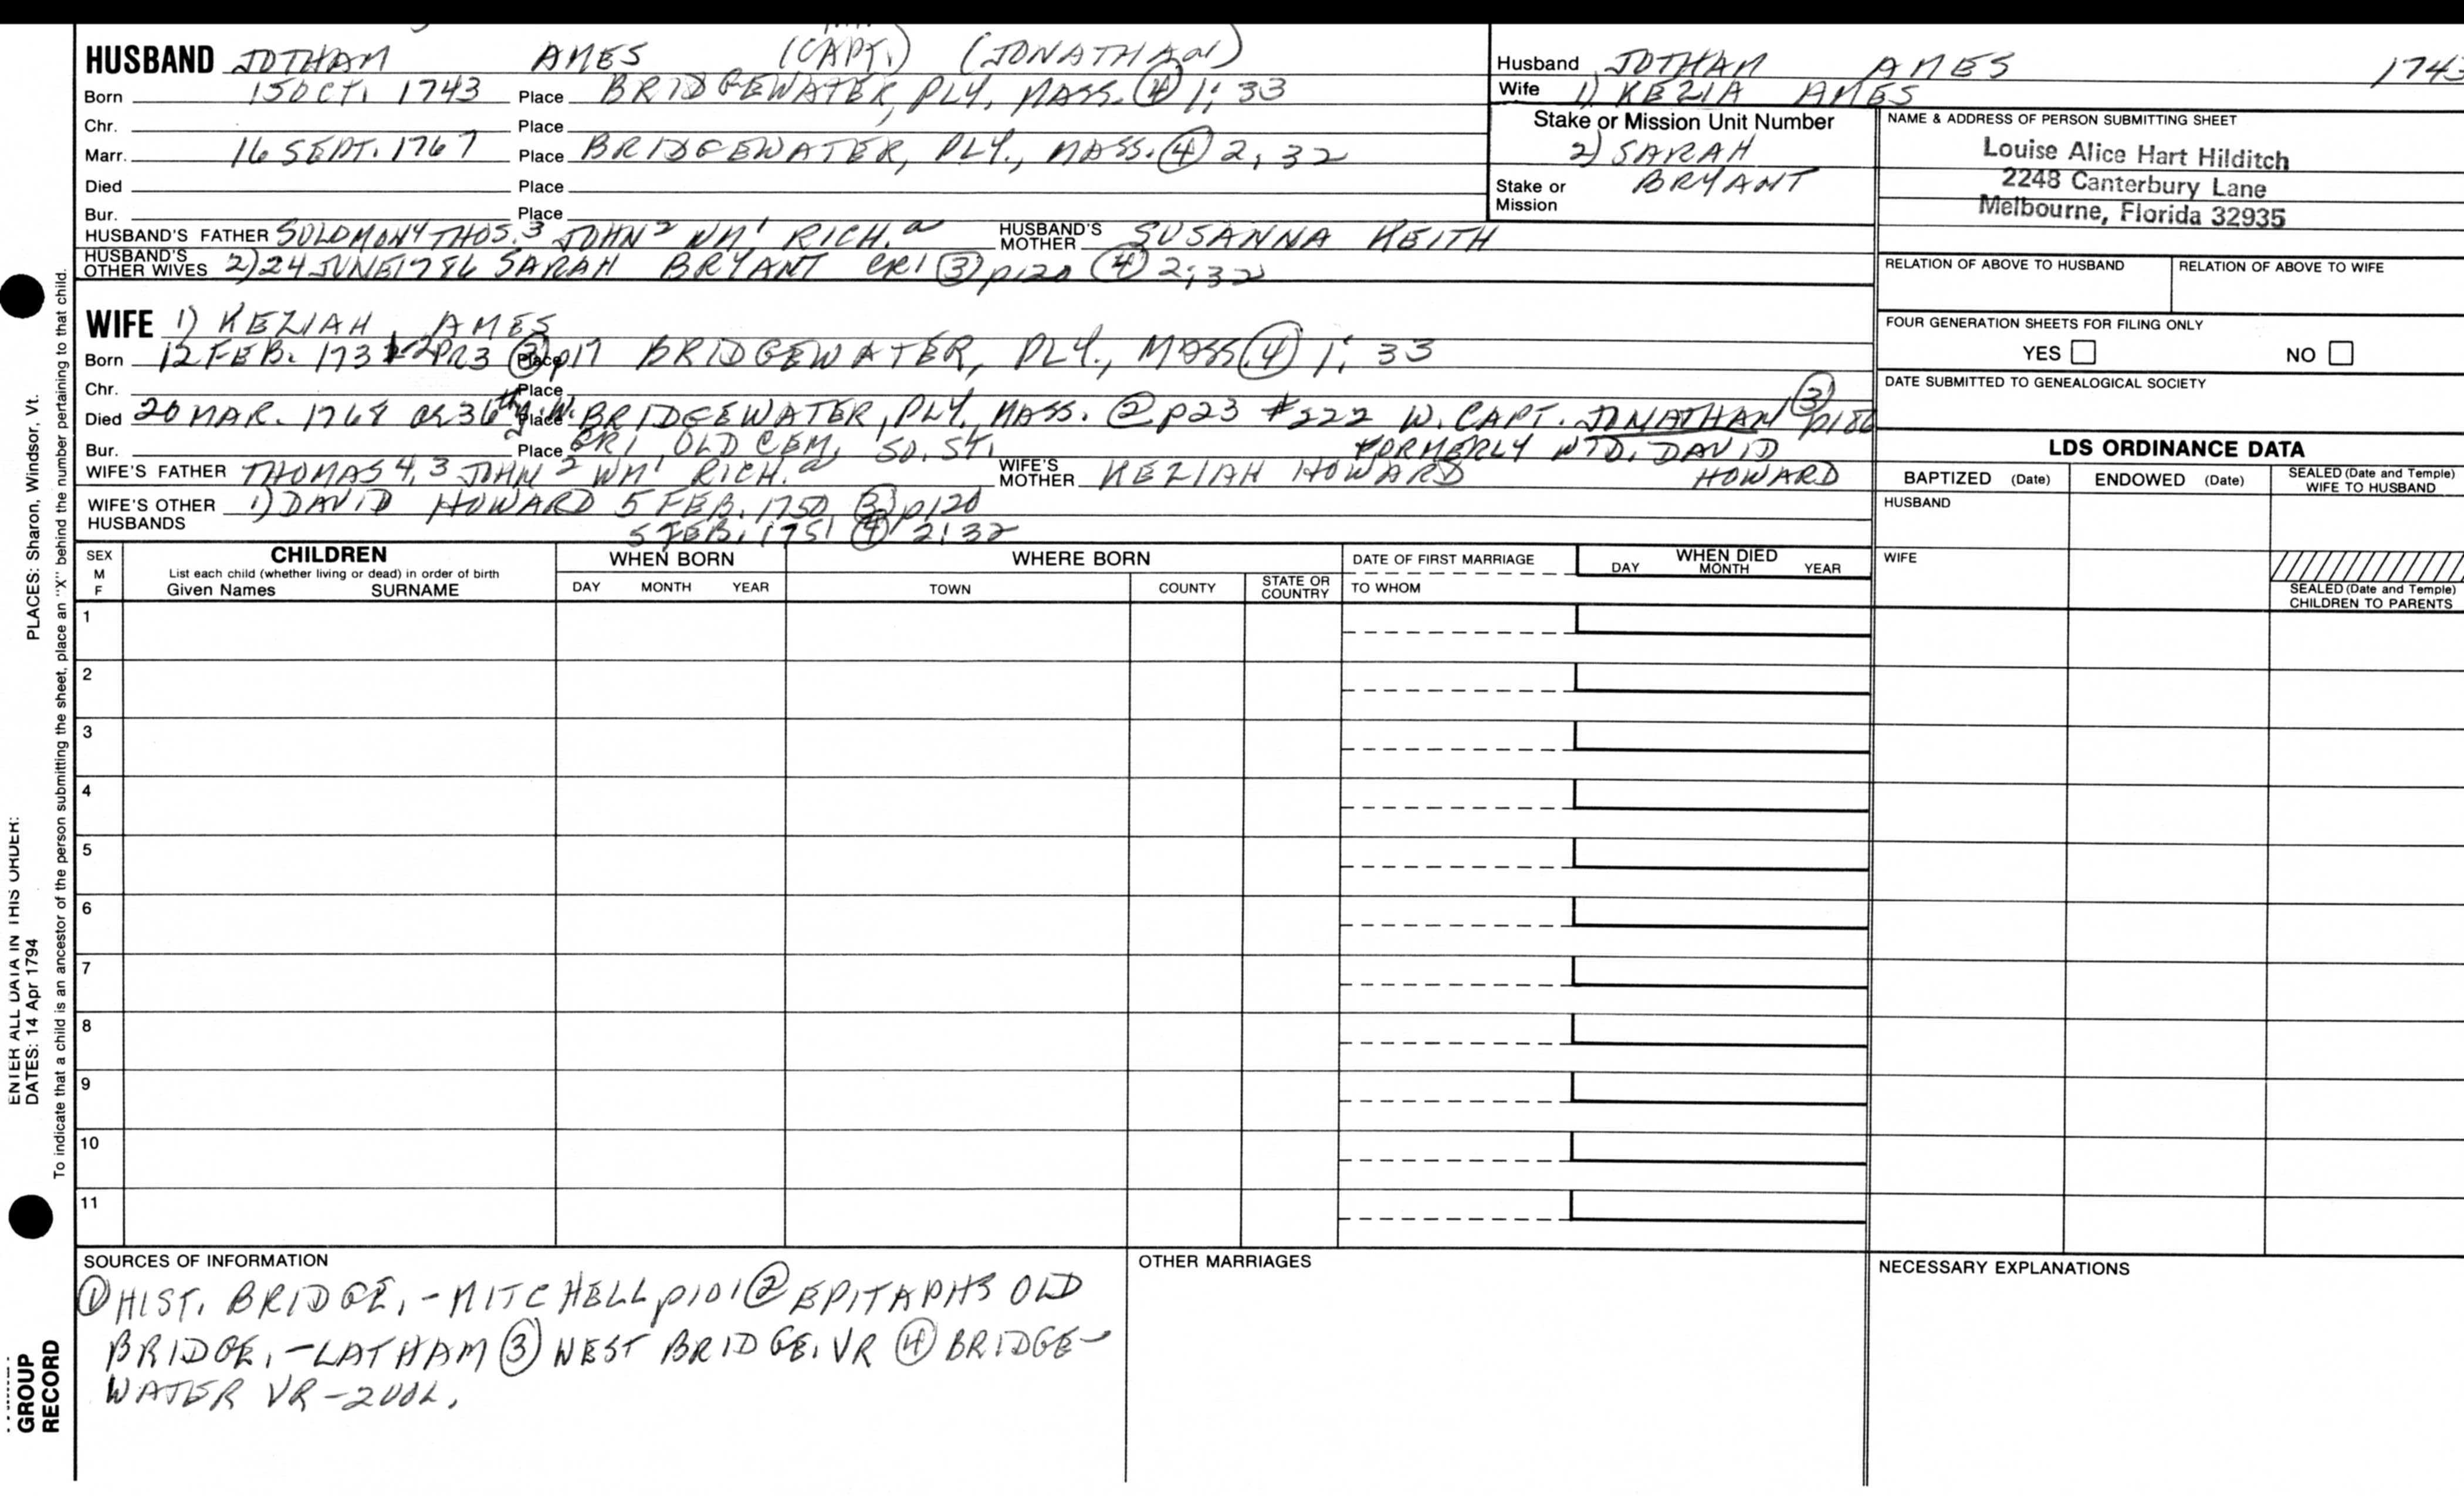 HUSBAND JOTHAM AMES (CAPT.) (JONATHAN)
Born 15 OCT. 1743 Place BRIDGEWATER, PLY. MASS. ④ 1; 33
Chr. Place
Marr. 16 SEPT. 1767 Place BRIDGEWATER, PLY., MASS. ④ 2; 32
Died Place
Bur. Place
HUSBAND'S FATHER SOLOMON4 THOS.3 JOHN2 WM1 RICH.a HUSBAND'S MOTHER SUSANNA KEITH
HUSBAND'S OTHER WIVES 2) 24 JUNE 1786 SARAH BRYANT CR1 ③ p120 ④ 2; 32
Husband JOTHAM AMES 1743
Wife 1) KEZIA AMES
Stake or Mission Unit Number
2) SARAH
BRYANT
Stake or Mission
NAME & ADDRESS OF PERSON SUBMITTING SHEET
Louise Alice Hart Hilditch
2248 Canterbury Lane
Melbourne, Florida 32935
RELATION OF ABOVE TO HUSBAND RELATION OF ABOVE TO WIFE
FOUR GENERATION SHEETS FOR FILING ONLY
YES NO
DATE SUBMITTED TO GENEALOGICAL SOCIETY
WIFE 1) KEZIAH AMES
Born 12 FEB. 173 PR3 p17 Place BRIDGEWATER, PLY., MASS. ④ 1; 33
Chr. Place
Died 20 MAR. 1768 36th Place BRIDGEWATER, PLY. MASS. ② p23 #222 W. CAPT. JONATHAN ③ p186
Bur. Place CR1 OLD CEM. SO. ST. FORMERLY WID. DAVID
HOWARD
WIFE'S FATHER THOMAS 4, 3 JOHN2 WM1 RICH.a WIFE'S MOTHER KEZIAH HOWARD
WIFE'S OTHER HUSBANDS 1) DAVID HOWARD 5 FEB. 1750 ③ p120
5 FEB. 1751 ④ 2; 32
LDS ORDINANCE DATA
BAPTIZED (Date) ENDOWED (Date) SEALED (Date and Temple) WIFE TO HUSBAND
HUSBAND
WIFE
SEALED (Date and Temple) CHILDREN TO PARENTS
SEX M F
CHILDREN
List each child (whether living or dead) in order of birth
Given Names SURNAME
WHEN BORN
DAY MONTH YEAR
WHERE BORN
TOWN COUNTY STATE OR COUNTRY
DATE OF FIRST MARRIAGE
TO WHOM
WHEN DIED
DAY MONTH YEAR
1
2
3
4
5
6
7
8
9
10
11
SOURCES OF INFORMATION
① HIST. BRIDGE. - MITCHELL p101 ② EPITAPHS OLD
BRIDGE. - LATHAM ③ WEST BRIDGE. VR ④ BRIDGE-
WATER VR - 2 VOL.
OTHER MARRIAGES
NECESSARY EXPLANATIONS
PLACES: Sharon, Windsor, Vt.
ENTER ALL DATA IN THIS ORDER:
DATES: 14 Apr 1794
To indicate that a child is an ancestor of the person submitting the sheet, place an "X" behind the number pertaining to that child.
GROUP
RECORD